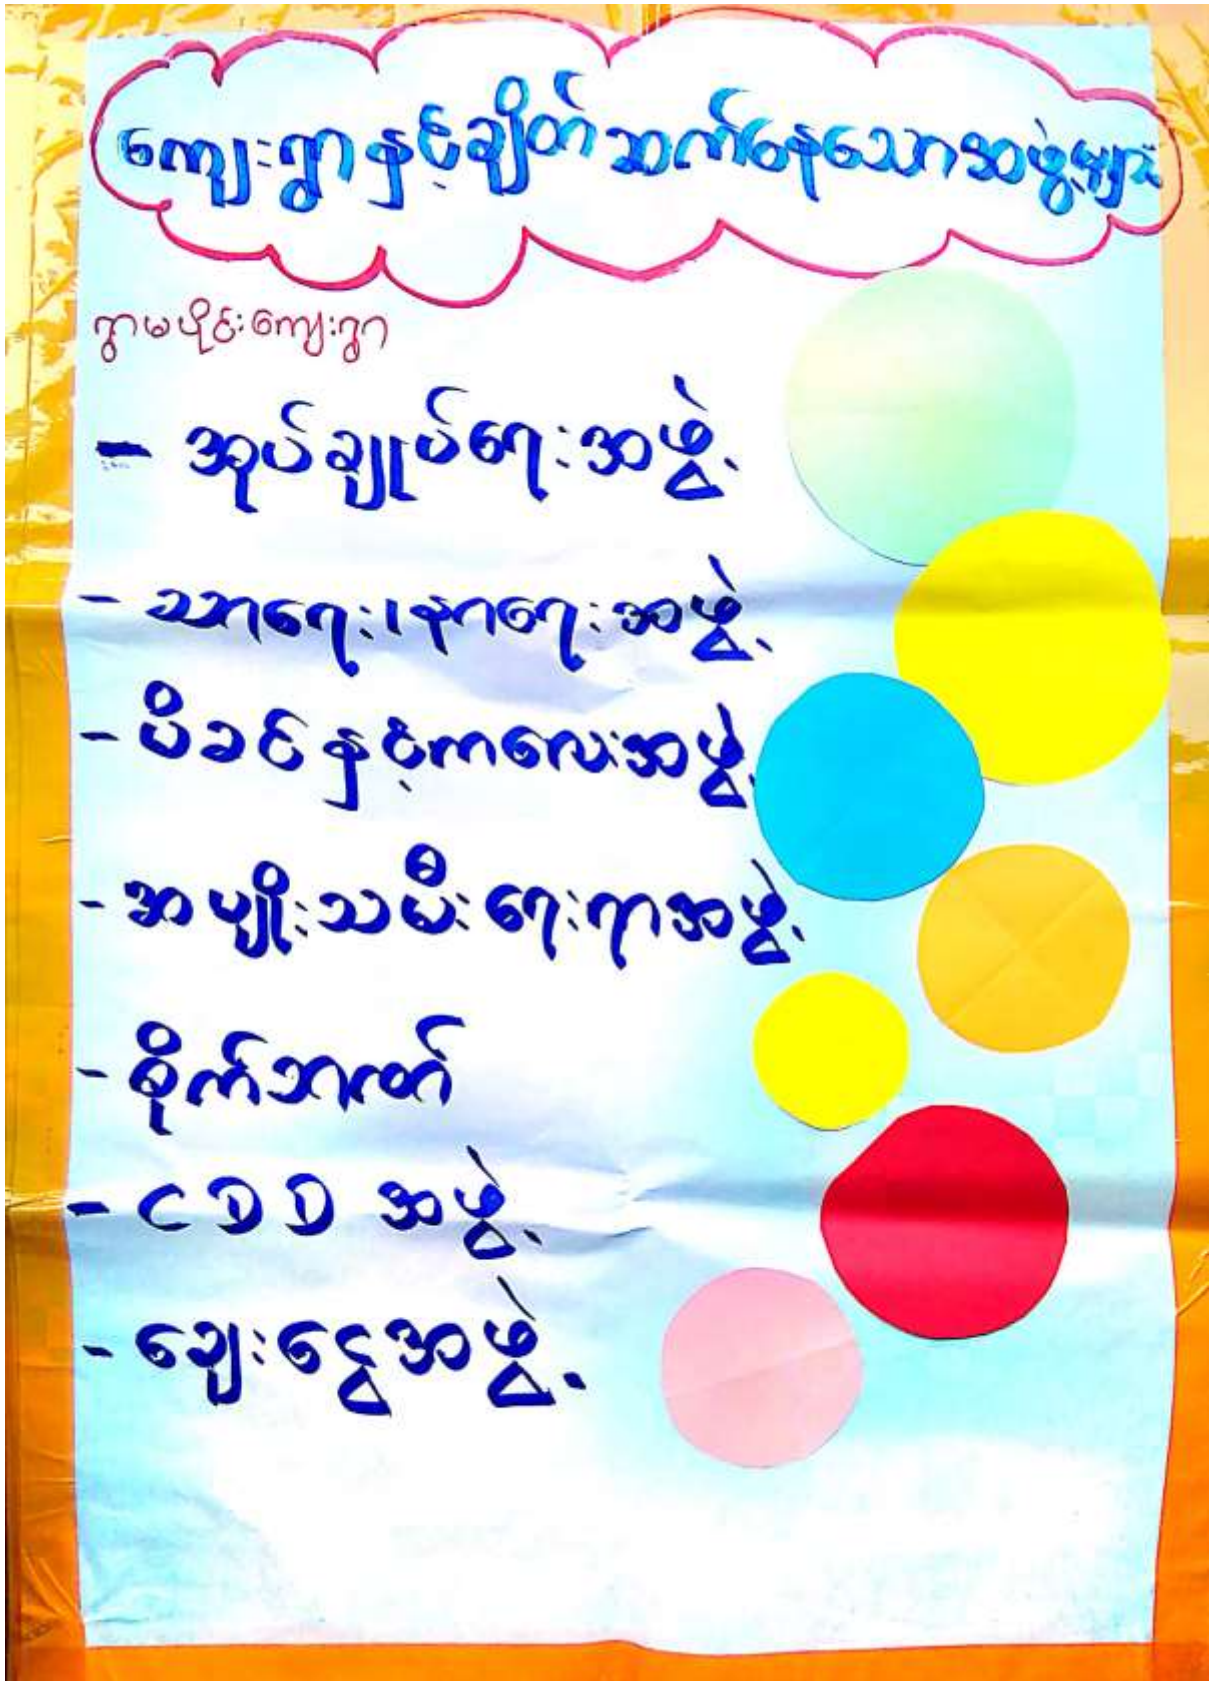 ကျေးရွာနှင့်ချိတ်ဆက်နေသောအဖွဲ့များ
ရွာမပိုင်းကျေးရွာ
- အုပ်ချုပ်ရေးအဖွဲ့
- သာရေး၊နာရေးအဖွဲ့
- မိခင်နှင့်ကလေးအဖွဲ့
- အမျိုးသမီးရေးရာအဖွဲ့
- စိုက်ဘဏ်
- CDD အဖွဲ့
- ချေးငွေအဖွဲ့